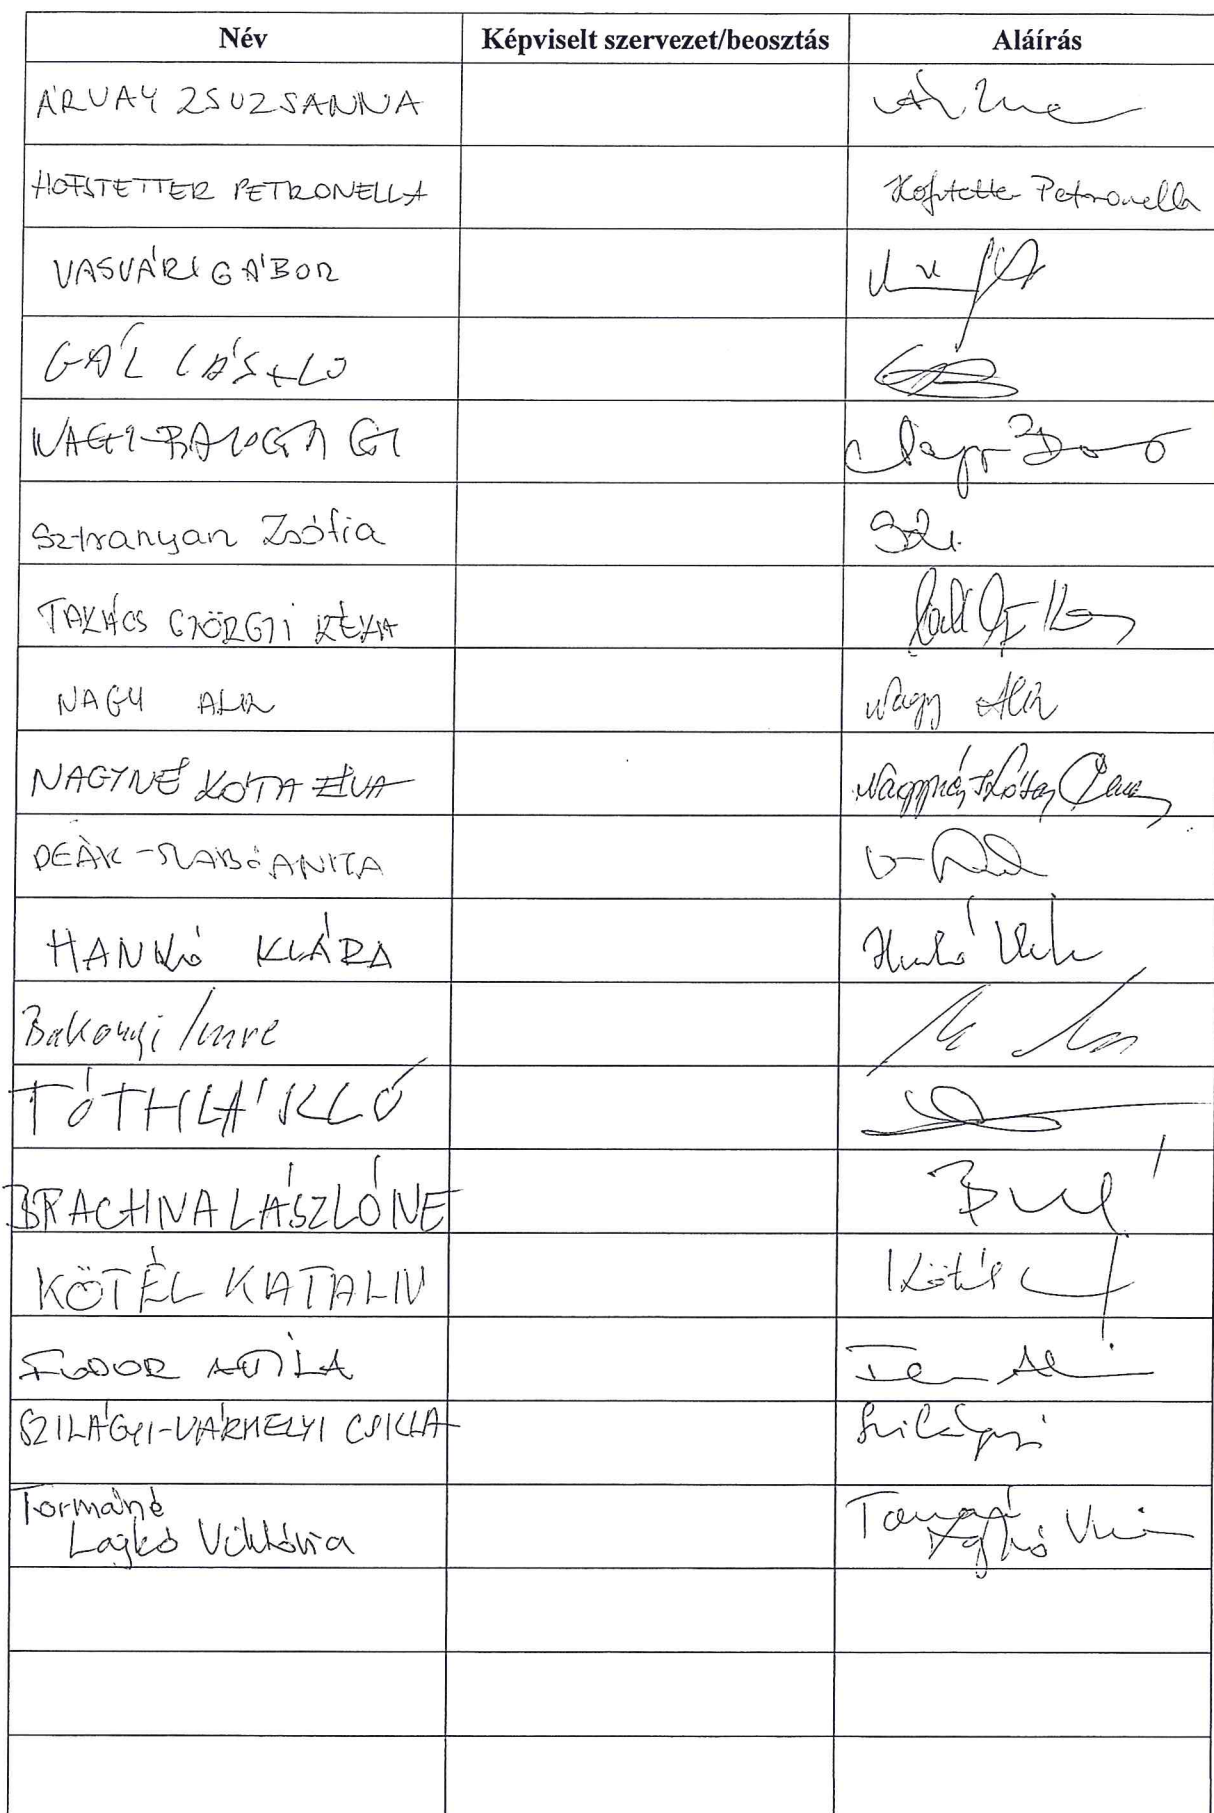 Név Képviselt szervezet/beosztás Aláírás
ÁRVAY ZSUZSANNA
HOFSTETTER PETRONELLA Hofstetter Petronella
VASVÁRI GÁBOR
GÁL LÁSZLÓ
NAGY-BALOGH GY Nagy B
Sztranyan Zsófia
TAKÁCS GYÖRGYI RÉKA
NAGY ALIZ Nagy Aliz
NAGYNÉ KÓTA ÉVA Nagyné Kóta Éva
DEÁK-SZABÓ ANITA
HANKÓ KLÁRA Hankó Klára
Bakonyi Imre
TÓTH LÁSZLÓ
BRACHNA LÁSZLÓNÉ
KÖTÉL KATALIN Kötél
FODOR ATTILA
SZILÁGYI-VÁRHELYI CSILLA Szilágyi
Tormáné
Lajkó Viktória Lajkó